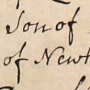 Son of
of Newt